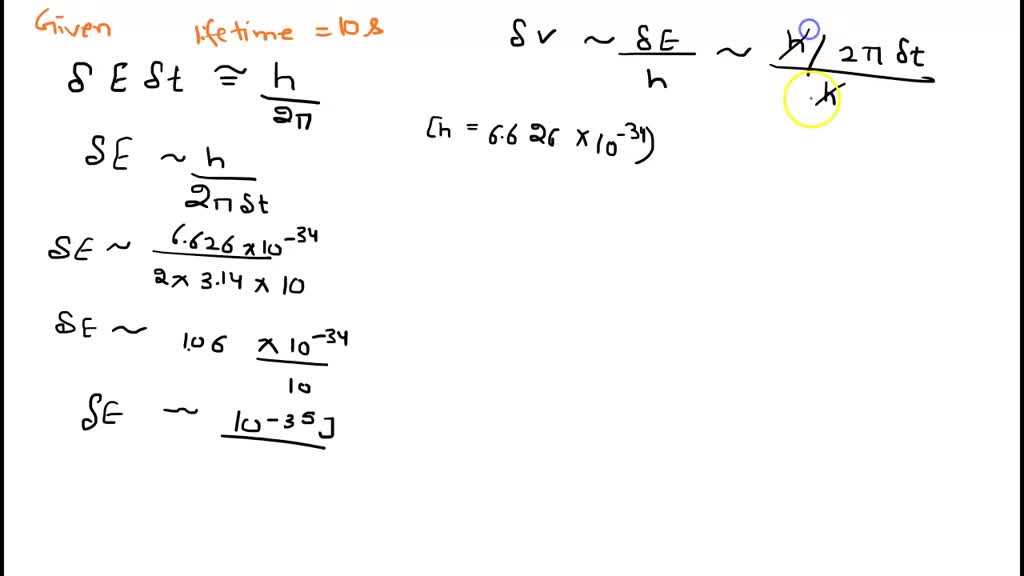 Given lifetime = 10s
δE δt ≅ h/2π
δE ~ h/2πδt
δE ~ 6.626 × 10^-34 / 2 × 3.14 × 10
δE ~ 1.06 × 10^-34 / 10
δE ~ 10^-35 J
δν ~ δE/h ~ h/2πδt / h
[h = 6.626 × 10^-34)